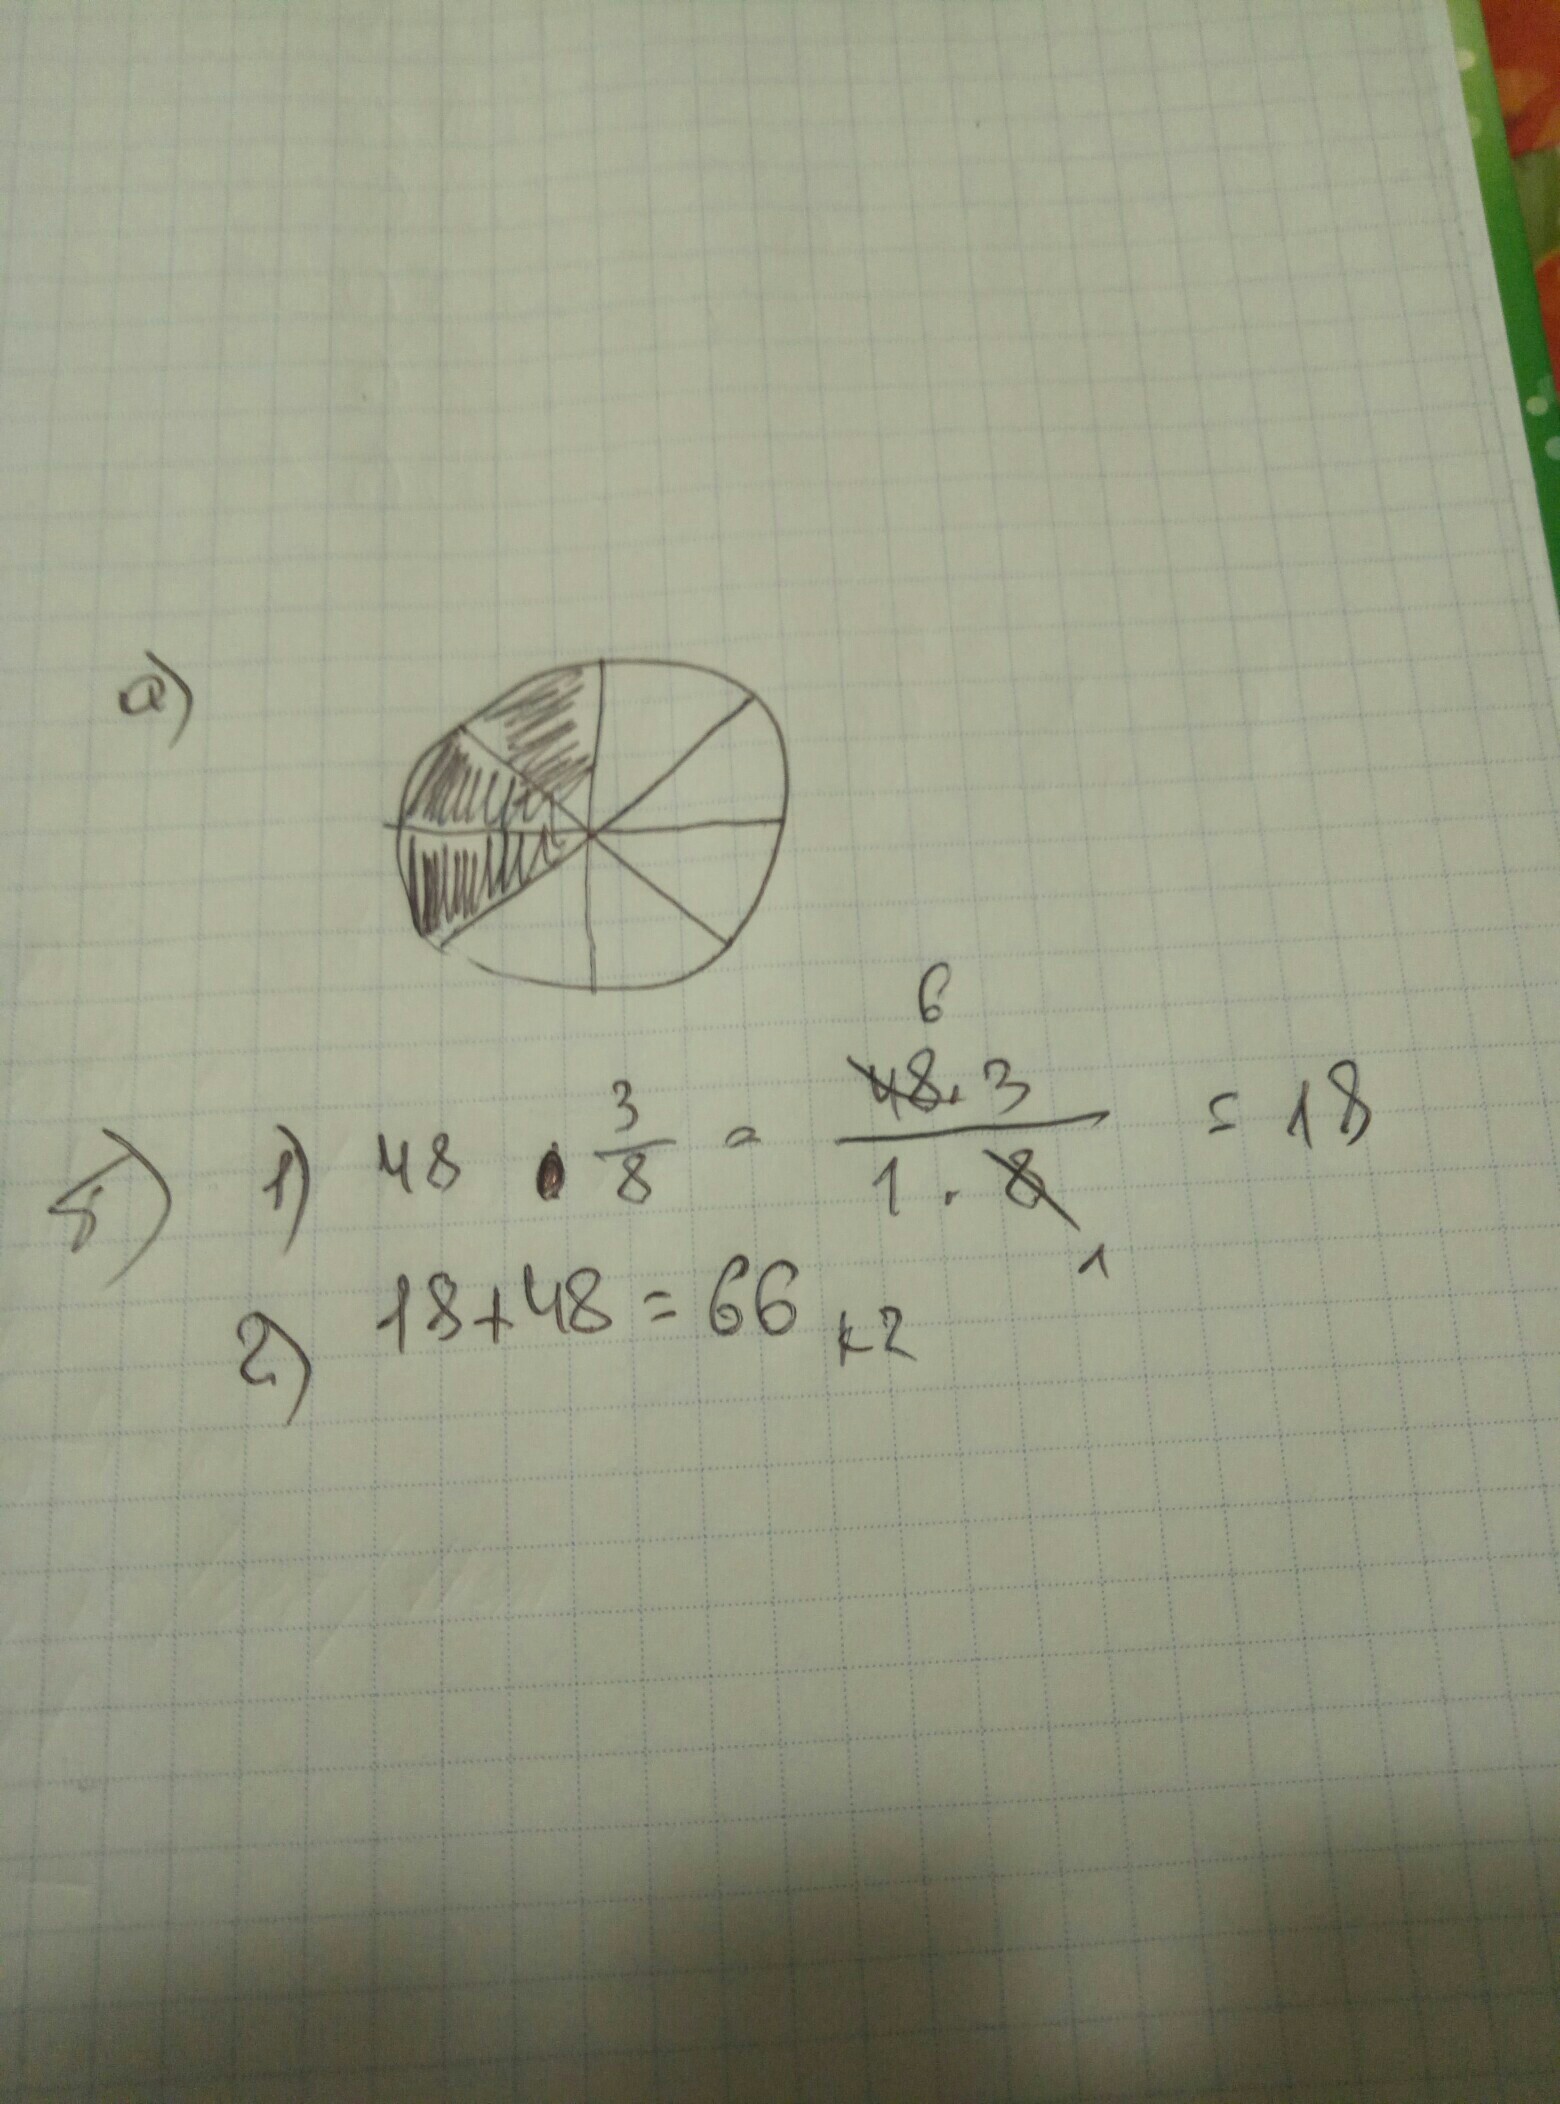 а)
б) 1) 48 · 3/8 = 48·3/1·8 = 18
6
1
2) 18+48=66 кг